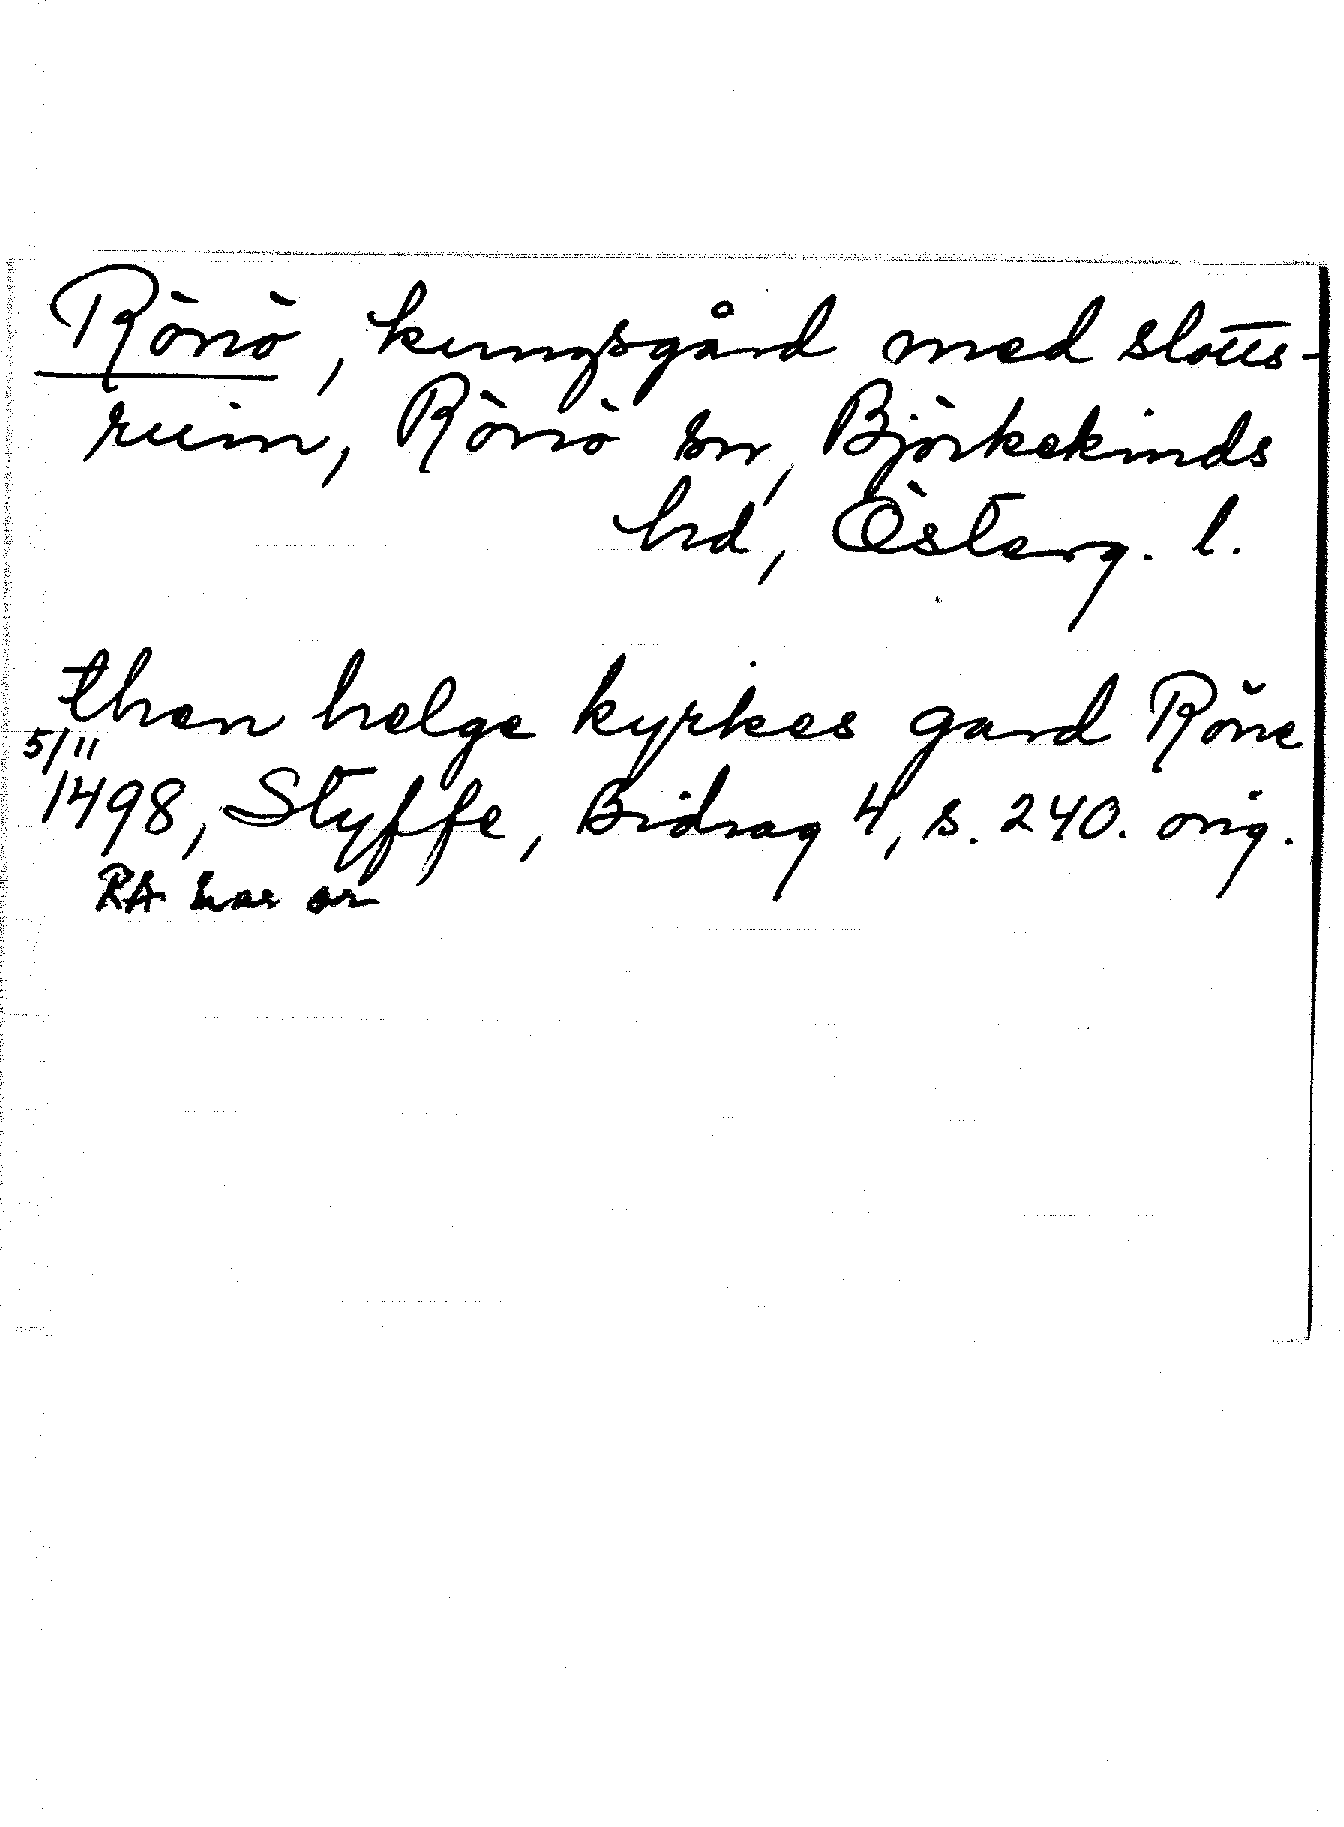 Rönö, kungsgård med slotts-
ruin, Rönö sn, Björkekinds
hd, Österg. l.
then helge kyrkes gard Röne
5/11
1498, Styffe, Bidrag 4, s. 240. orig.
RA